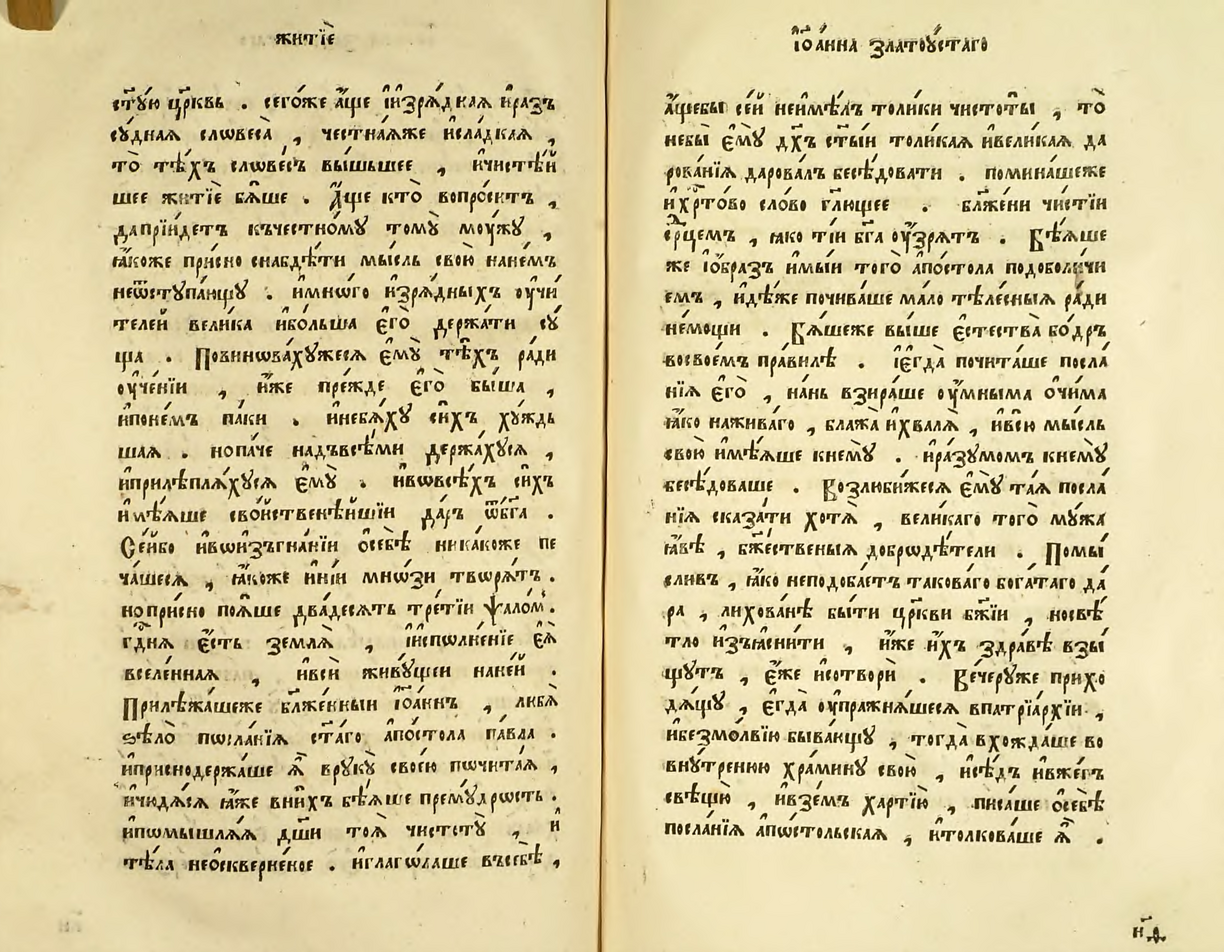 житїѐ
ст҃ꙋ́ю цр҃ковь . сего́же а҆́ще і҆изрѧ́днаѧ и҆раз
сꙋ́днаѧ слѡвеса̀ , че́стнаѧже и҆сла́дкаѧ ,
то̀ тѣ́хъ слѡве́съ вы́шьшее , и҆чистѣ́й
шее житїѐ бѧ́ше . А҆́ще кто̀ вопро́ситъ ,
дапрїи́детъ къче́стномꙋ томꙋ̀ мꙋ́жꙋ ,
ꙗ҆́коже при́сно снабдѣ́ти мы́сль свою̀ нане́мъ
неѿстꙋпа́ющꙋ . и҆мно́гѡ и҆зрѧ́дныхъ ᲂу҆чи
те́лей вели́ка и҆бо́льша є҆го̀ держа́ти сꙋ́
ща . Повинѡва́хꙋжесѧ є҆мꙋ̀ тѣ́хъ ра́ди
ᲂу҆че́нїи , и҆́же пре́жде є҆го̀ бы́ша ,
и҆поне́мъ па́ки . и҆небѧ́хꙋ си́хъ хꙋ́ждь
шаѧ . нопа́че надъвсѣ́ми держа́хꙋсѧ ,
и҆прилѣплѧ́хꙋсѧ є҆мꙋ̀ . и҆вѡвсѣ́хъ си́хъ
и҆мѣ́ѧше сво́йственѣйшїи да́ръ ѿбг҃а .
Се́йбо и҆вои҆згна́нїи ѡ҆себѣ̀ ника́коже пе
ча́шесѧ , ꙗ҆́коже и҆нїи́ мно́зи творѧ́тъ .
нопри́сно поѧ́ше два́десѧть тре́тїи ѱало́м .
гд҃нѧ є҆́сть землѧ̀ , и҆и҆спѡлне́нїе є҆ѧ̀
вселе́ннаѧ , и҆вси́ живꙋ́щеи на́ней .
Прилѣжа́шеже бл҃же́нныи і҆ѡа́ннъ , любѧ̀
ѕѣлѡ̀ пѡсла́нїѧ ст҃а́го а҆по́стола па́вла .
и҆приснодержа́ше ѧ҆̀ врꙋкꙋ̀ свое́ю пѡчита́ѧ ,
и҆чюдѧ́сѧ ꙗ҆́же вни́хъ бѣ́ѧше премꙋ́дрѡсть .
и҆пѡмышлѧ́ѧ дш҃и тоѧ̀ чистотꙋ̀ , и
тѣ́ла неѡскверне́ное . и҆глаго́лаше въсебѣ̀ ,
і҆ѡа́нна златоꙋ́стаго
а҆́щебы се́й неи҆мѣ́лъ толи́ки чистоты̀ , то̀
небы̀ є҆мꙋ̀ дх҃ъ ст҃ы́и толи́каѧ и҆вели́каѧ да
рова́нїѧ дарова́лъ бесѣ́довати . помина́шеже
и҆хр҃то́во сло́во гл҃ющее . бл҃же́ни чи́стїи
ср҃цемъ , ꙗко ті́и бг҃а ᲂу҆́зрѧтъ . Бѣ́ѧше
же і҆о́бразъ и҆мы́и того̀ а҆по́стола подоболи́чи
емъ , и҆дѣ́же почива́ше ма́ло тѣле́сныѧ ра́ди
не́мощи . Бѧ́шеже вы́ше є҆стества̀ бо́дръ
восвое́мъ пра́вилѣ . і҆є҆гда̀ почита́ше посла́
нїѧ є҆го̀ , на́нь взира́ше ᲂу҆́мныма ѻ҆чи́ма
ꙗ҆́ко нажива́го , блажа̀ и҆хвалѧ̀ , и҆всю̀ мы́сль
свою̀ и҆мѣ́ѧше кнемꙋ̀ . и҆ра́зꙋмомъ кнемꙋ̀
бесѣ́доваше . Возлюби́жесѧ є҆мꙋ̀ та́ѧ посла́
нїѧ сказа́ти хотѧ̀ , вели́каго того̀ мꙋ́жа
ꙗ҆́вѣ , бж҃е́ственыѧ добродѣ́тели . Помы́
сливъ , ꙗ҆́ко неподоба́етъ такова́го бога́таго да́
ра , лихова́нѣ бы́ти цр҃кви бж҃їи , носвѣ́
тло и҆зъꙗсни́ти , и҆́же и҆́хъ здра́вѣ взы́
щꙋтъ , є҆́же и҆сотворѝ . Ве́черꙋже прихо
дѧ́щꙋ , є҆гда̀ ᲂу҆пражнѧ́шесѧ впатрїа́рхїи ,
и҆безмо́лвїю быва́ющꙋ , тогда̀ вхожда́ше во
внꙋ́треннюю хра́минꙋ свою̀ , и҆сѣ́дъ и҆вже́гъ
свѣщꙋ̀ , и҆взе́мъ ха́ртїю , писа́ше ѡ҆себѣ̀
посла́нїѧ а҆пѡ́стольскаѧ , и҆толкова́ше ѧ҆̀ .